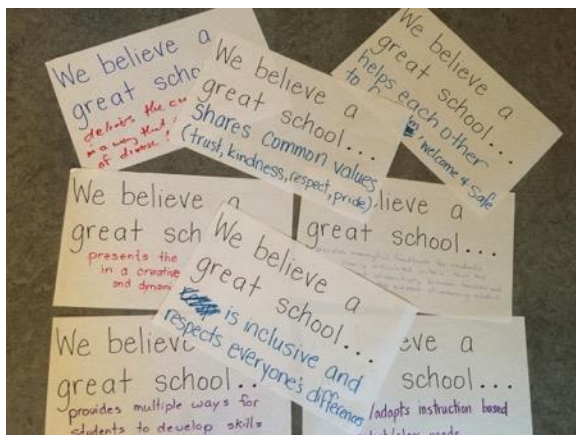 We believe a
great scho
delivers the cu
in a way that
of
We believe a
great school...
Shares Common values
(trust, kindness, respect, pride)
We believe a
great school...
helps each other
to
, welcome & safe
We believe a
great sch
presents the
in a creative
and dynami
lieve a
great school...
We believe a
great school...
is inclusive and
respects everyone's differences
We believe
great school..
provides multiple ways for
students to develop skills
eve a
school...
/adapts instruction based
needs